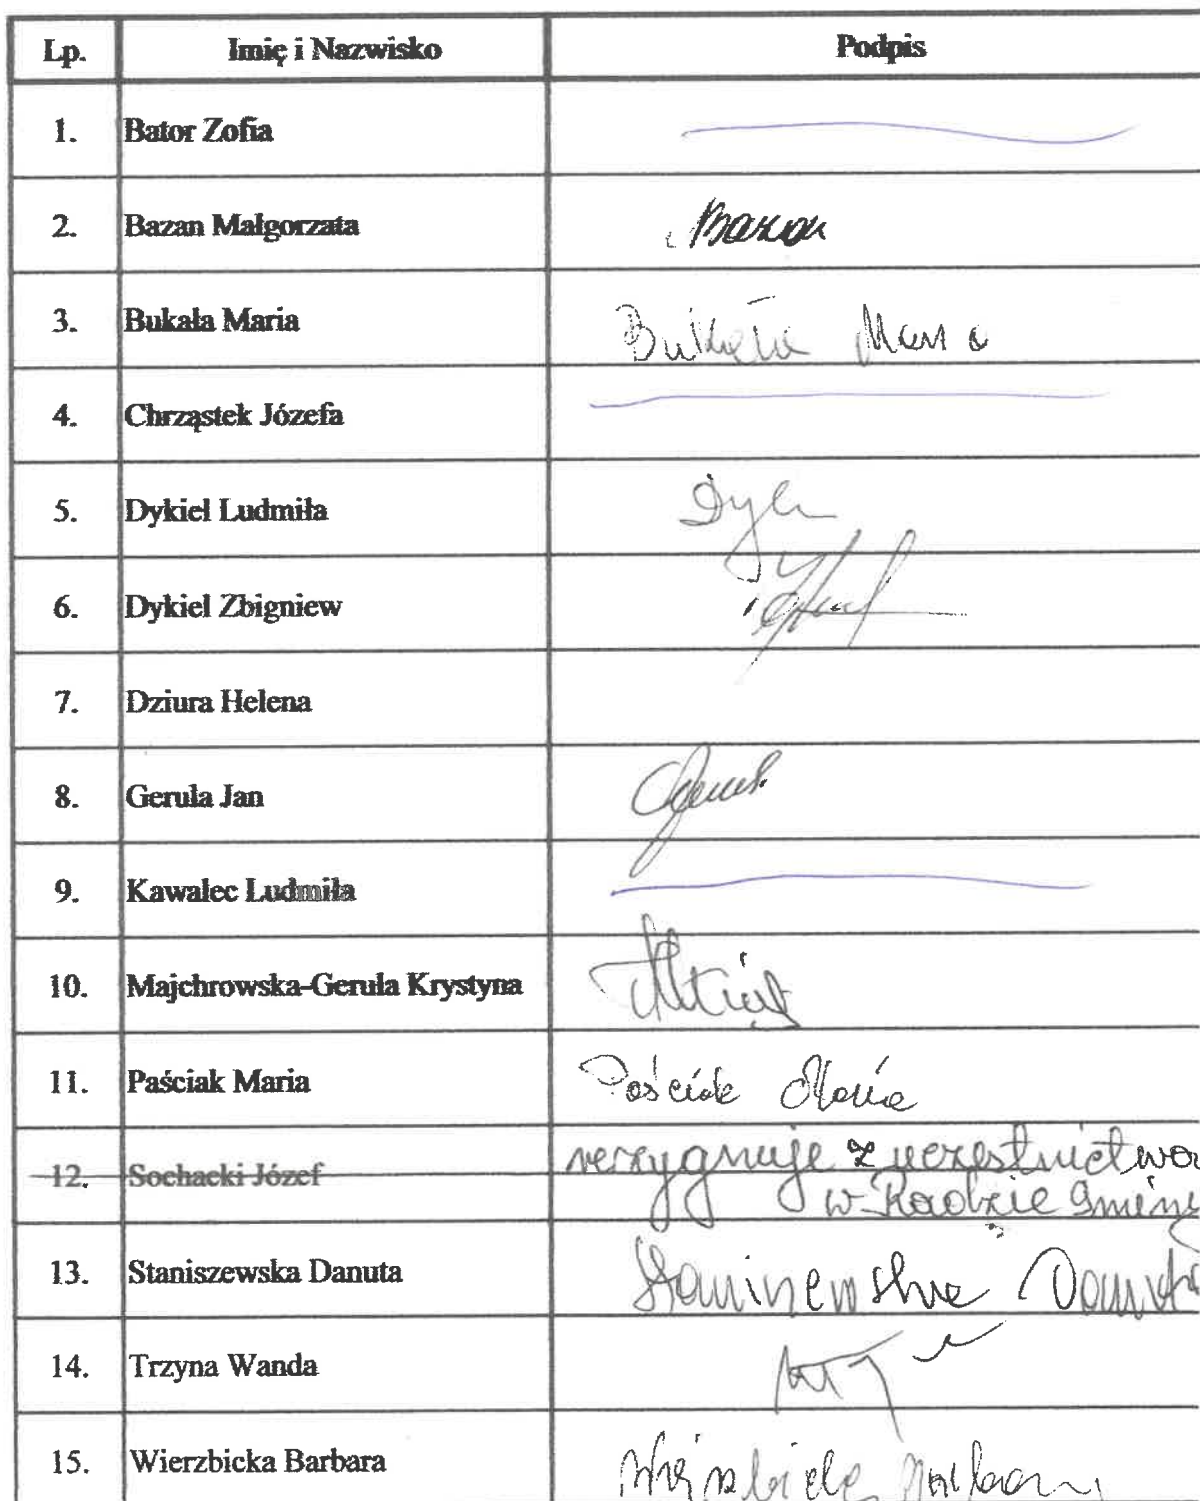 Lp. Imię i Nazwisko Podpis
1. Bator Zofia
2. Bazan Małgorzata Bazan
3. Bukała Maria Bukała Maria
4. Chrząstek Józefa
5. Dykiel Ludmiła
6. Dykiel Zbigniew
7. Dziura Helena
8. Gerula Jan
9. Kawalec Ludmiła
10. Majchrowska-Gerula Krystyna
11. Paściak Maria Paściak Maria
12. Sochacki Józef rezygnuje z uczestnictwa
w Radzie Gminy
13. Staniszewska Danuta Staniszewska Danuta
14. Trzyna Wanda
15. Wierzbicka Barbara Wierzbicka Barbara